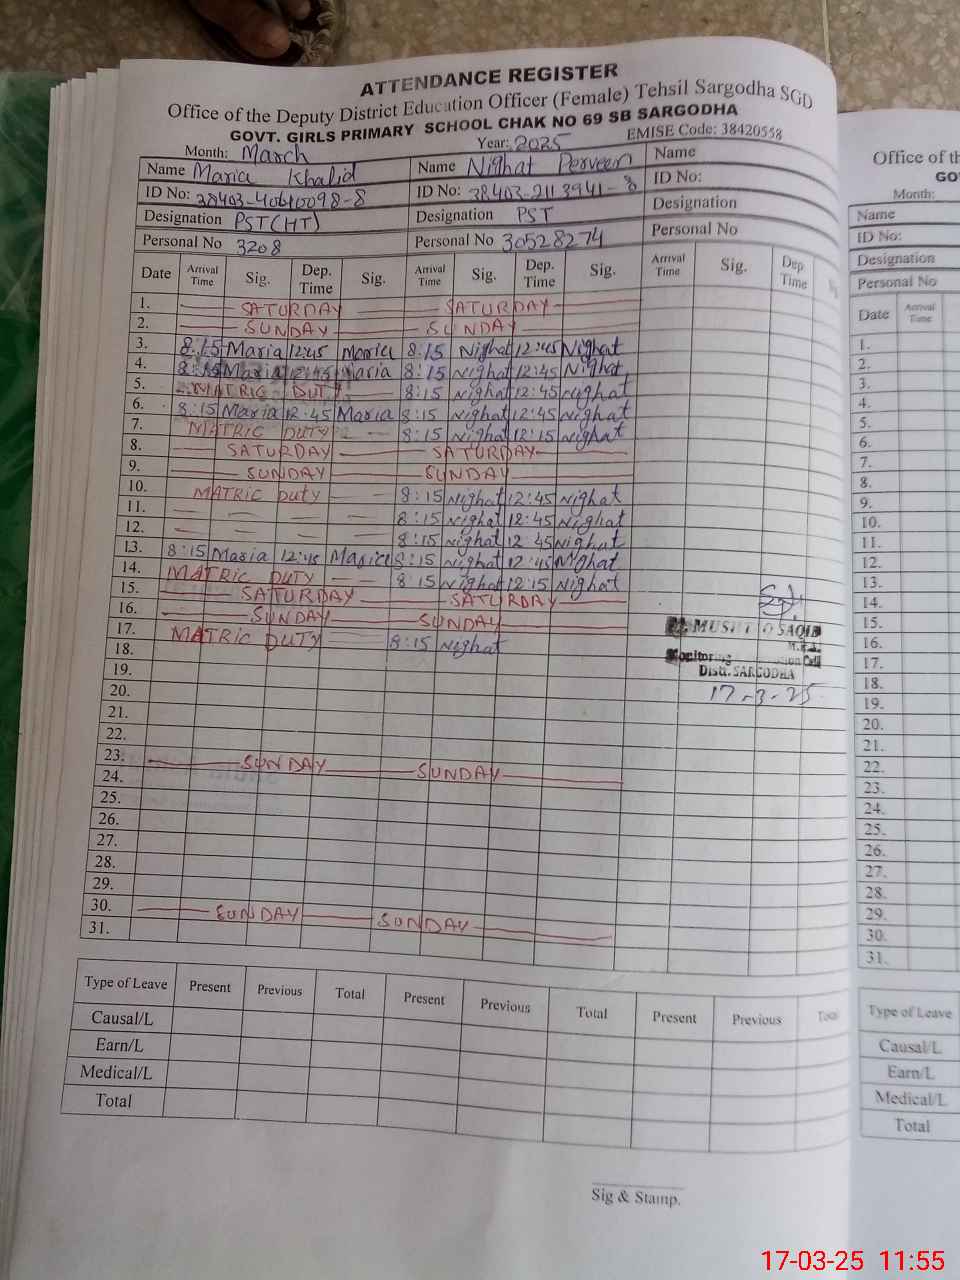 ATTENDANCE REGISTER
Office of the Deputy District Education Officer (Female) Tehsil Sargodha SGD
GOVT. GIRLS PRIMARY SCHOOL CHAK NO 69 SB SARGODHA
Month: March Year: 2025 EMISE Code: 38420558
Name Maria Khalid Name Nighat Perveen Name
ID No: 38403-40610098-8 ID No: 38403-2113941-8 ID No:
Designation PST(HT) Designation PST Designation
Personal No 3208 Personal No 30528274 Personal No
Date Arrival Time Sig. Dep. Time Sig. Arrival Time Sig. Dep. Time Sig. Arrival Time Sig. Dep Time
1. SATURDAY SATURDAY
2. SUNDAY SUNDAY
3. 8:15 Maria 12:45 Maria 8:15 Nighat 12:45 Nighat
4. 8:15 Maria 12:45 Maria 8:15 Nighat 12:45 Nighat
5. MATRIC DUTY 8:15 Nighat 12:45 Nighat
6. 8:15 Maria 12:45 Maria 8:15 Nighat 12:45 Nighat
7. MATRIC DUTY 8:15 Nighat 12:15 Nighat
8. SATURDAY SATURDAY
9. SUNDAY SUNDAY
10. MATRIC Duty 8:15 Nighat 12:45 Nighat
11. 8:15 Nighat 12:45 Nighat
12. 8:15 Nighat 12 45 Nighat
13. 8:15 Maria 12:45 Maria 8:15 Nighat 12:45 Nighat
14. MATRIC DUTY 8:15 Nighat 12:15 Nighat
15. SATURDAY SATURDAY
16. SUNDAY SUNDAY
17. MATRIC DUTY 8:15 Nighat
18.
19.
20.
21.
22.
23. SUNDAY SUNDAY
24.
25.
26.
27.
28.
29.
30. SUNDAY SUNDAY
31.
SAQIB
M.E.A.
Monitoring Cell
Distt. SARGODHA
17-3-25
Type of Leave Present Previous Total Present Previous Total Present Previous Total
Causal/L
Earn/L
Medical/L
Total
Sig & Stamp.
Office of th
GO
Month:
Name
ID No:
Designation
Personal No
Date Arrival Time
1.
2.
3.
4.
5.
6.
7.
8.
9.
10.
11.
12.
13.
14.
15.
16.
17.
18.
19.
20.
21.
22.
23.
24.
25.
26.
27.
28.
29.
30.
31.
Type of Leave
Causal/L
Earn/L
Medical/L
Total
17-03-25 11:55